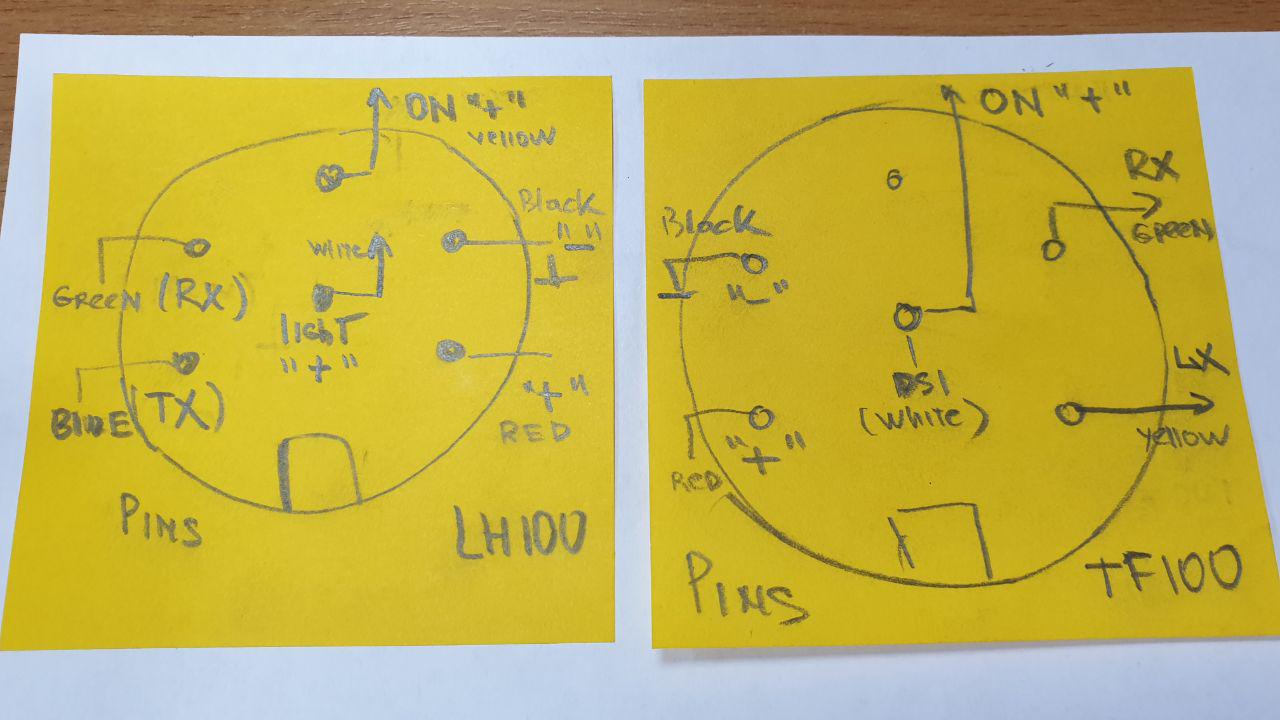 ON "+"
yellow
Black
"-"
white
GREEN (RX)
light
"+"
BlUE (TX)
"+"
RED
PINS
LH100
ON "+"
RX
GREEN
Black
"-"
DSI
(white)
yellow
"+"
RED
PINS
TF100